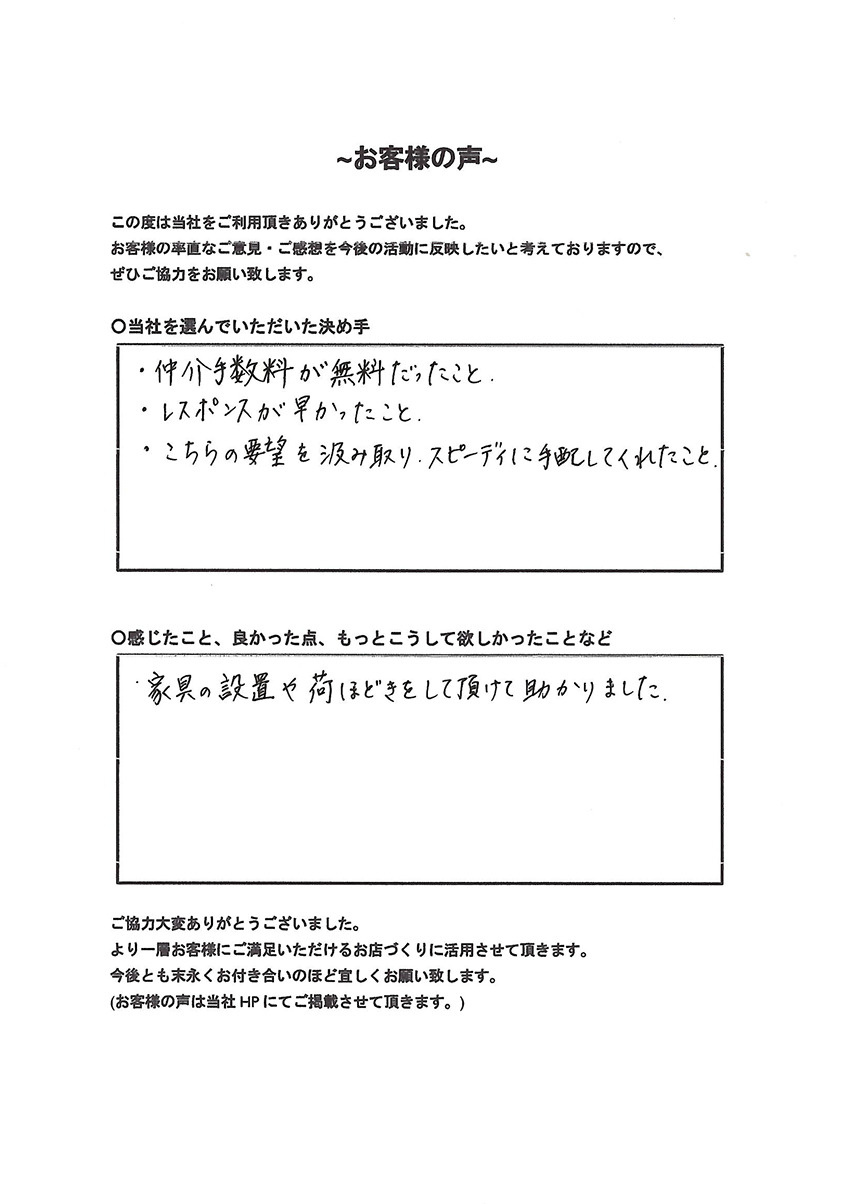 ~お客様の声~
この度は当社をご利用頂きありがとうございました。
お客様の率直なご意見・ご感想を今後の活動に反映したいと考えておりますので、
ぜひご協力をお願い致します。
〇当社を選んでいただいた決め手
・仲介手数料が無料だったこと.
・レスポンスが早かったこと.
・こちらの要望を汲み取り.スピーディに手配してくれたこと.
〇感じたこと、良かった点、もっとこうして欲しかったことなど
・家具の設置や荷ほどきをして頂けて助かりました.
ご協力大変ありがとうございました。
より一層お客様にご満足いただけるお店づくりに活用させて頂きます。
今後とも末永くお付き合いのほど宜しくお願い致します。
(お客様の声は当社 HP にてご掲載させて頂きます。)